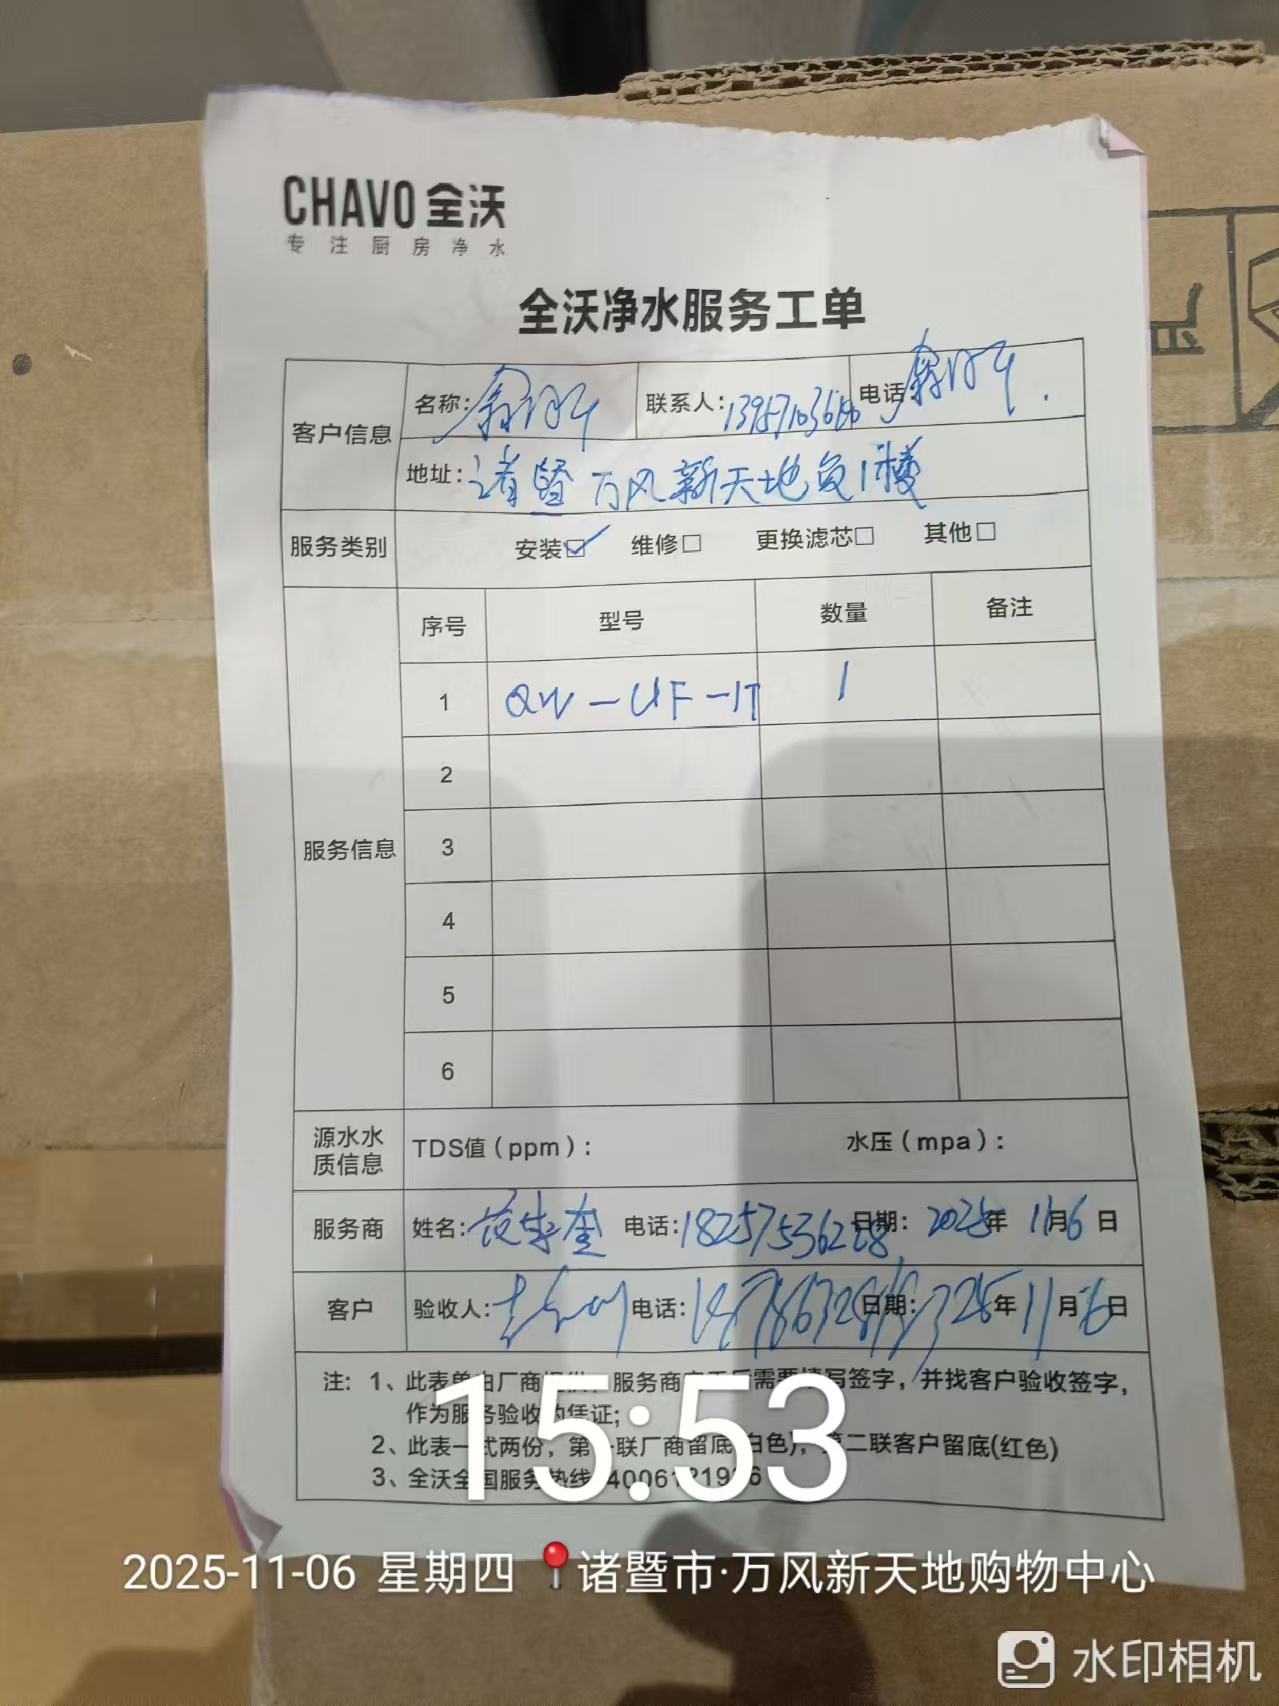 CHAVO 全沃
专注厨房净水
全沃净水服务工单
客户信息 名称: 联系人: 电话:
地址: 诸暨万风新天地负1楼
服务类别 安装☑ 维修□ 更换滤芯□ 其他□
服务信息 序号 型号 数量 备注
1 QW-UF-1T 1
2
3
4
5
6
源水水质信息 TDS值(ppm): 水压(mpa):
服务商 姓名: 电话:18257536228 日期: 2025年11月6日
客户 验收人: 电话: 日期: 25年11月6日
注: 1、此表单由厂商提供,服务商 需要填写签字,并找客户验收签字,
作为服务验收的凭证;
2、此表一式两份,第一联厂商留底(白色),第二联客户留底(红色)
3、全沃全国服务热线
15:53
2025-11-06 星期四 诸暨市·万风新天地购物中心
水印相机